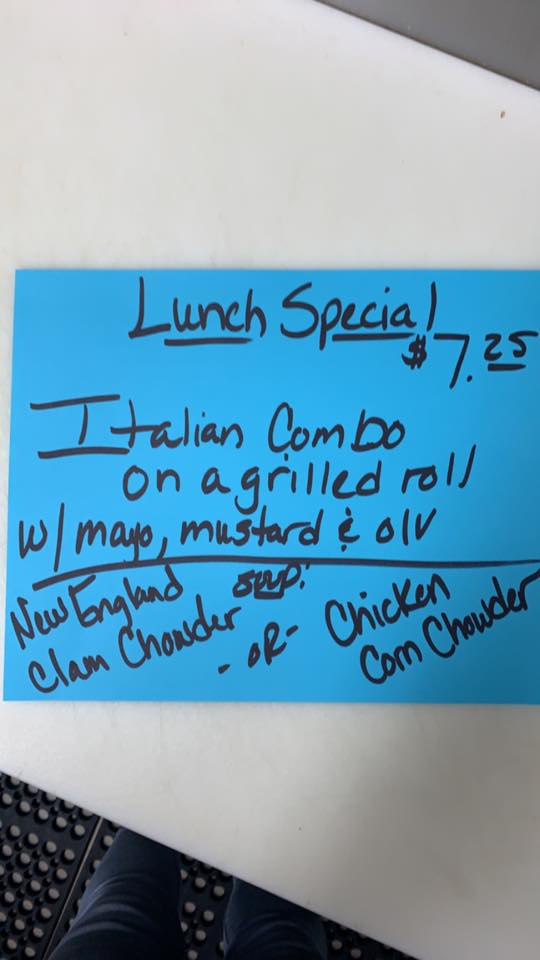 Lunch Special
$7.25
Italian Combo
on a grilled roll
w/ mayo, mustard & o/v
soup:
New England
Clam Chowder
- OR -
Chicken
Corn Chowder